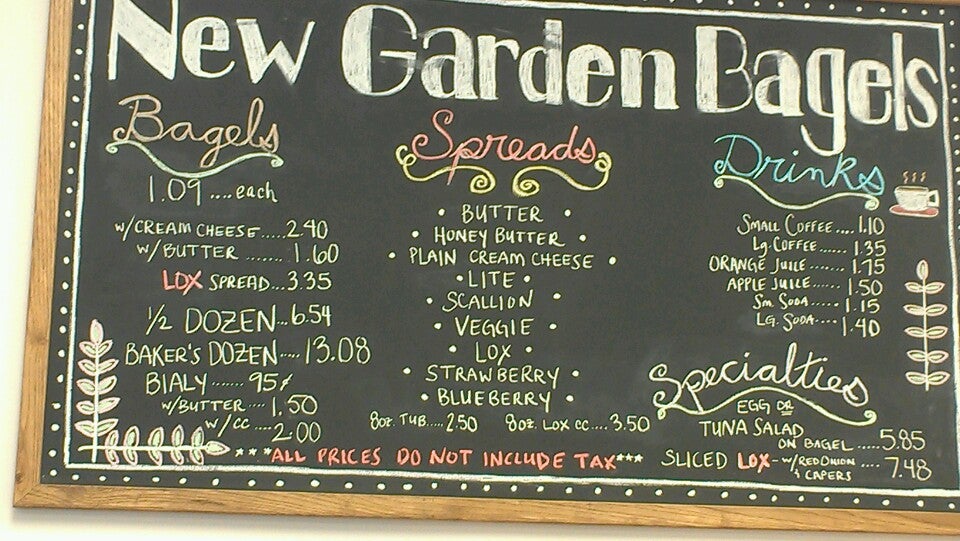 New Garden Bagels
Bagels
1.09....each
w/CREAM CHEESE.....2.40
w/BUTTER ........ 1.60
LOX SPREAD...3.35
1/2 DOZEN...6.54
BAKER'S DOZEN....13.08
BIALY....... 95¢
w/BUTTER....1.50
w/CC ....2.00
Spreads
• BUTTER •
• HONEY BUTTER •
• PLAIN CREAM CHEESE •
• LITE •
• SCALLION •
• VEGGIE •
• LOX •
• STRAWBERRY •
• BLUEBERRY •
8oz. TUB....2.50 8oz. LOX CC....3.50
Drinks
SMALL COFFEE....1.10
Lg. COFFEE......1.35
ORANGE JUICE.......1.75
APPLE JUICE......1.50
Sm. SODA.....1.15
LG. SODA....1.40
Specialties
EGG OR
TUNA SALAD
ON BAGEL.....5.85
SLICED LOX-w/RED ONION ....7.48
& CAPERS
***ALL PRICES DO NOT INCLUDE TAX***